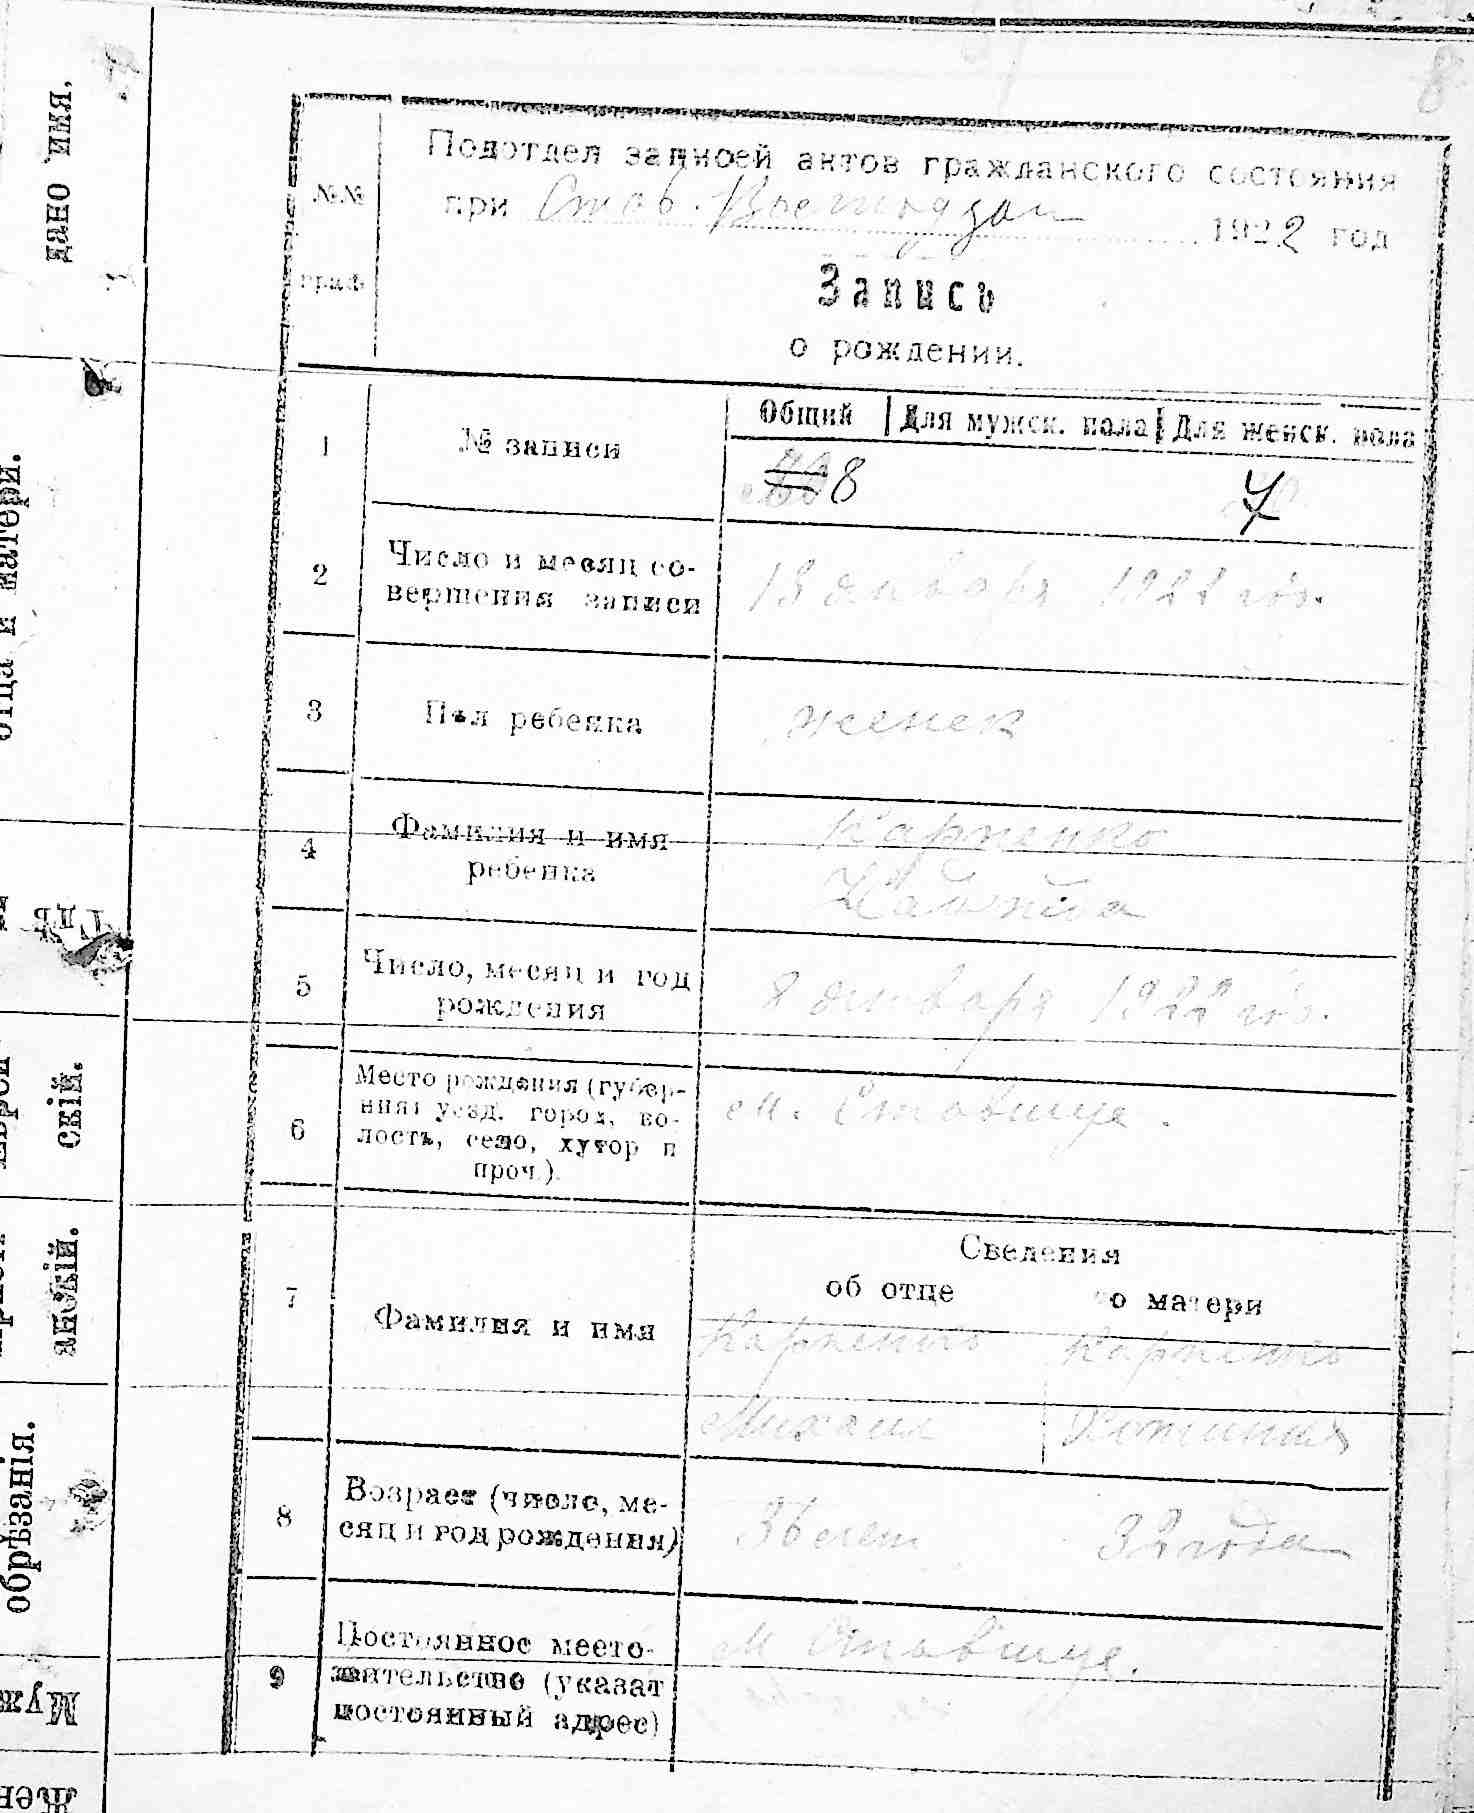 8
дано имя.
отца и матери.
скій.
обрѣзанія.
Подотдел записей актов гражданского состояния
№№ при Став. 1922 год
граф
Запись
о рождении.
Общий Для мужск. пола Для женск. пола
1 № записи 8 7
2 Число и месяц со- 13 января 1922 го.
вершения записи
3 Пол ребенка женск
4 Фамилия и имя Карпенко
ребенка
5 Число, месяц и год 8 января 1922 го.
рождения
Место рождения (губер- м. Ставище.
ния, уезд, город, во-
6 лость, село, хутор и
проч.).
Сведения
об отце о матери
7 Фамилия и имя Карпенко Карпенко
Михаил
Возраст (число, ме-
8 сяц и год рождения) 36 лет 32 года
Постоянное место- м Ставище.
9 жительство (указат
постоянный адрес)